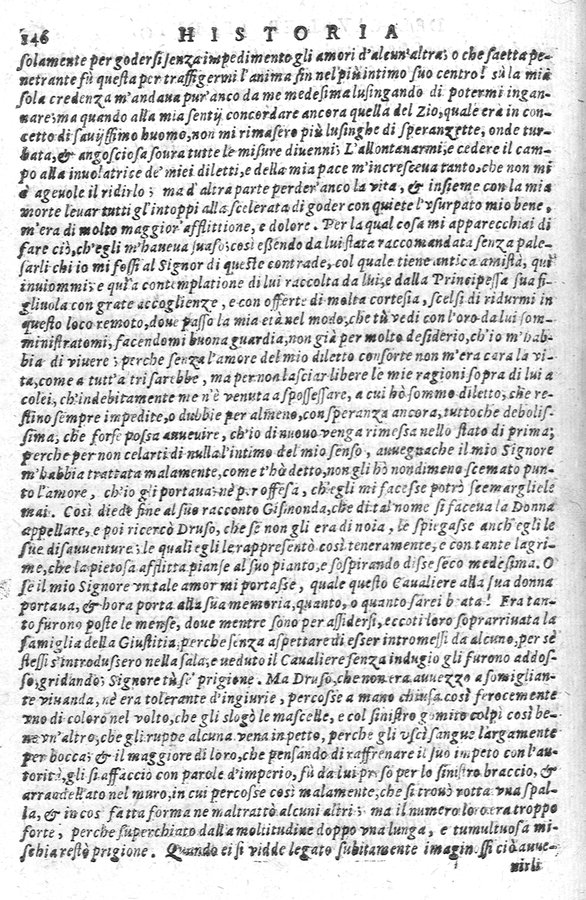 146 HISTORIA
solamente per godersi senza impedimento gli amori d'alcun'altra; o che saetta pe-
netrante fù questa per traffigermi l'anima fin nel più intimo suo centro! sù la mia
sola credenza m'andaua pur'anco da me medesima lusingando di potermi ingan-
nare; ma quando alla mia sentij concordare ancora quella del Zio, quale era in con-
cetto di sauijssimo huomo, non mi rimasero più lusinghe di speranzette, onde tur-
bata, & angosciosa soura tutte le misure diuenni; L'allontanarmi, e cedere il cam-
po alla inuolatrice de' miei diletti, e della mia pace m'incresceua tanto, che non mi
è ageuole il ridirlo; ma d'altra parte perder'anco la vita, & insieme con la mia
morte leuar tutti gl'intoppi alla scelerata di goder con quiete l'vsurpato mio bene,
m'era di molto maggior'afflittione, e dolore. Per la qual cosa mi apparecchiai di
fare ciò, ch'egli m'haueua suaso; così essendo da lui stata raccomandata senza pale-
sarli chi io mi fossi al Signor di queste contrade, col quale tiene antica amistà, qui
inuiommi; e quì a contemplatione di lui raccolta da lui, e dalla Principessa sua fi-
gliuola con grate accoglienze, e con offerte di molta cortesia, scelsi di ridurmi in
questo loco remoto, doue passo la mia età nel modo, che tù vedi con l'oro da lui som-
ministratomi, facendomi buona guardia, non già per molto desiderio, ch'io m'hab-
bia di viuere; perche senza l'amore del mio diletto consorte non m'era cara la vi-
ta, come a tutt'a tri sarebbe, ma per non lasciar libere le mie ragioni sopra di lui a
colei, ch'indebitamente me n'è venuta a spossessare, a cui hò sommo diletto, che re-
stino sempre impedite, o dubbie per almeno, con speranza ancora, tuttoche debolis-
sima, che forse possa auueuire, ch'io di nuouo venga rimessa nello stato di prima;
perche per non celarti di nulla l'intimo del mio senso, auuegnache il mio Signore
m'habbia trattata malamente, come t'hò detto, non gli hò nondimeno scemato pun-
to l'amore, ch'io gli portaua; nè per offesa, ch'egli mi facesse potrò scemargliele
mai. Così diede fine al suo racconto Gismonda, che di tal nome si faceua la Donna
appellare, e poi ricercò Druso, che se non gli era di noia, le spiegasse anch'egli le
sue disauuenture; le quali egli le rappresentò così teneramente, e con tante lagri-
me, che la pietosa afflitta pianse al suo pianto, e sospirando disse seco medesima. O
se il mio Signore vn tale amor mi portasse, quale questo Caualiere alla sua donna
portaua, & hora porta alla sua memoria, quanto, o quanto sarei b ata! Fra tan-
to furono poste le mense, doue mentre sono per assidersi, eccoti loro soprarriuata la
famiglia della Giustitia; perche senza aspettare di esser intromessi da alcuno, per se
stessi s'introdussero nella sala; e veduto il Caualiere senza indugio gli furono addos-
so, gridando; Signore tù se' prigione. Ma Druso, che non era auuezzo a somiglian-
te viuanda, nè era tolerante d'ingiurie, percosse a mano chiusa così ferocemente
vno di coloro nel volto, che gli slogò le mascelle, e col sinistro gomito colpì così be-
ne vn'altro, che gli ruppe alcuna vena in petto, perche gli vscì sangue largamente
per bocca; & il maggiore di loro, che pensando di raffrenare il suo impeto con l'au-
torità, gli si affacciò con parole d'imperio, fù da lui preso per lo sinistro braccio, &
arrandellato nel muro, in cui percosse così malamente, che si trouò rotta vna spal-
la, & in cos fatta forma ne maltrattò alcuni altri; ma il numero loro era troppo
forte; perche superchiato dalla moltitudine doppo vna lunga, e tumultuosa mi-
schia restò prigione. Quando ei si vidde legato subitamente imagin ssi ciò auue-
nirli